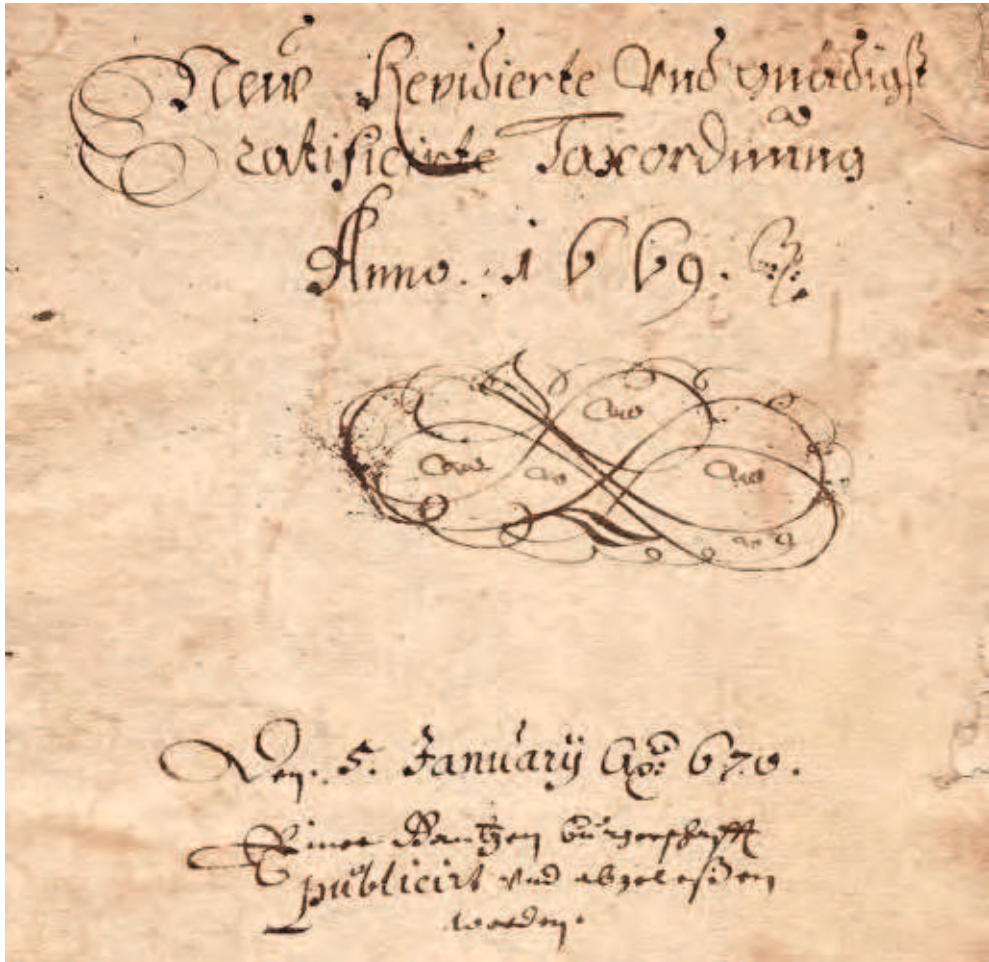 Neuw Revidierte Vnd gnädigst
ratificierte Taxordnung
Anno. 1669.
Den. 5. Januarÿ Aõ: 670.
Einer Gantzen bürgerschafft
publicirt vnd abgeleßen
worden.